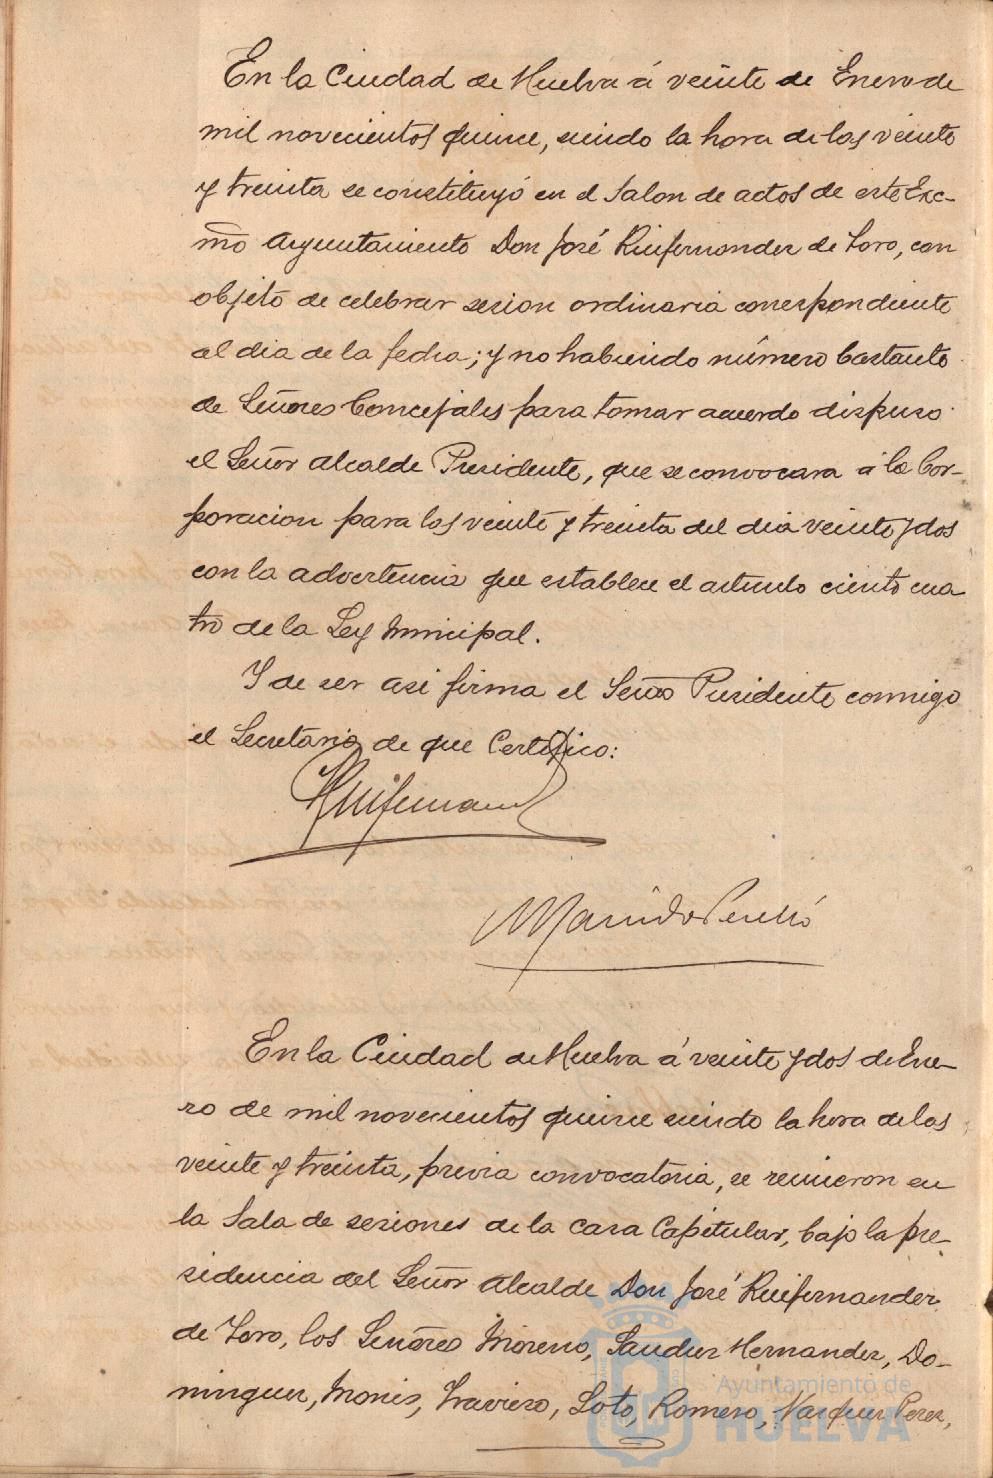 En la Ciudad de Huelva á veinte de Enero de
mil novecientos quince, siendo la hora de las veinte
y treinta se constituyó en el Salon de actos de este Exc-
mo Ayuntamiento Don José Ruifernandez de Toro, con
objeto de celebrar sesion ordinaria correspondiente
al dia de la fecha; y no habiendo número bastante
de Señores Concejales para tomar acuerdo dispuso
el Señor Alcalde Presidente, que se convocara á la Cor-
poracion para las veinte y treinta del dia veinte y dos
con la advertencia que establece el artículo ciento cua
tro de la Ley Municipal.
Y de ser asi firma el Señor Presidente conmigo
el Secretario de que Certifico:
Ruifernand
En la Ciudad de Huelva á veinte y dos de Ene-
ro de mil novecientos quince siendo la hora de las
veinte y treinta, previa convocatoria, se reunieron en
la Sala de sesiones de la casa Capitular, bajo la pre-
sidencia del Señor Alcalde Don José Ruifernandez
de Toro, los Señores Moreno, Sanchez Hernandez, Do-
minguez, Monis, Travieso, Soto, Romero, Vazquez Perez,
Ayuntamiento de
HUELVA